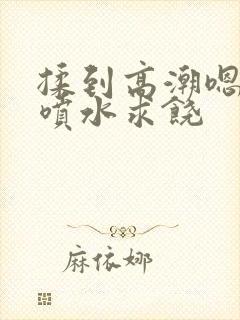 揉到高潮嗯
噴水求饒
麻依娜